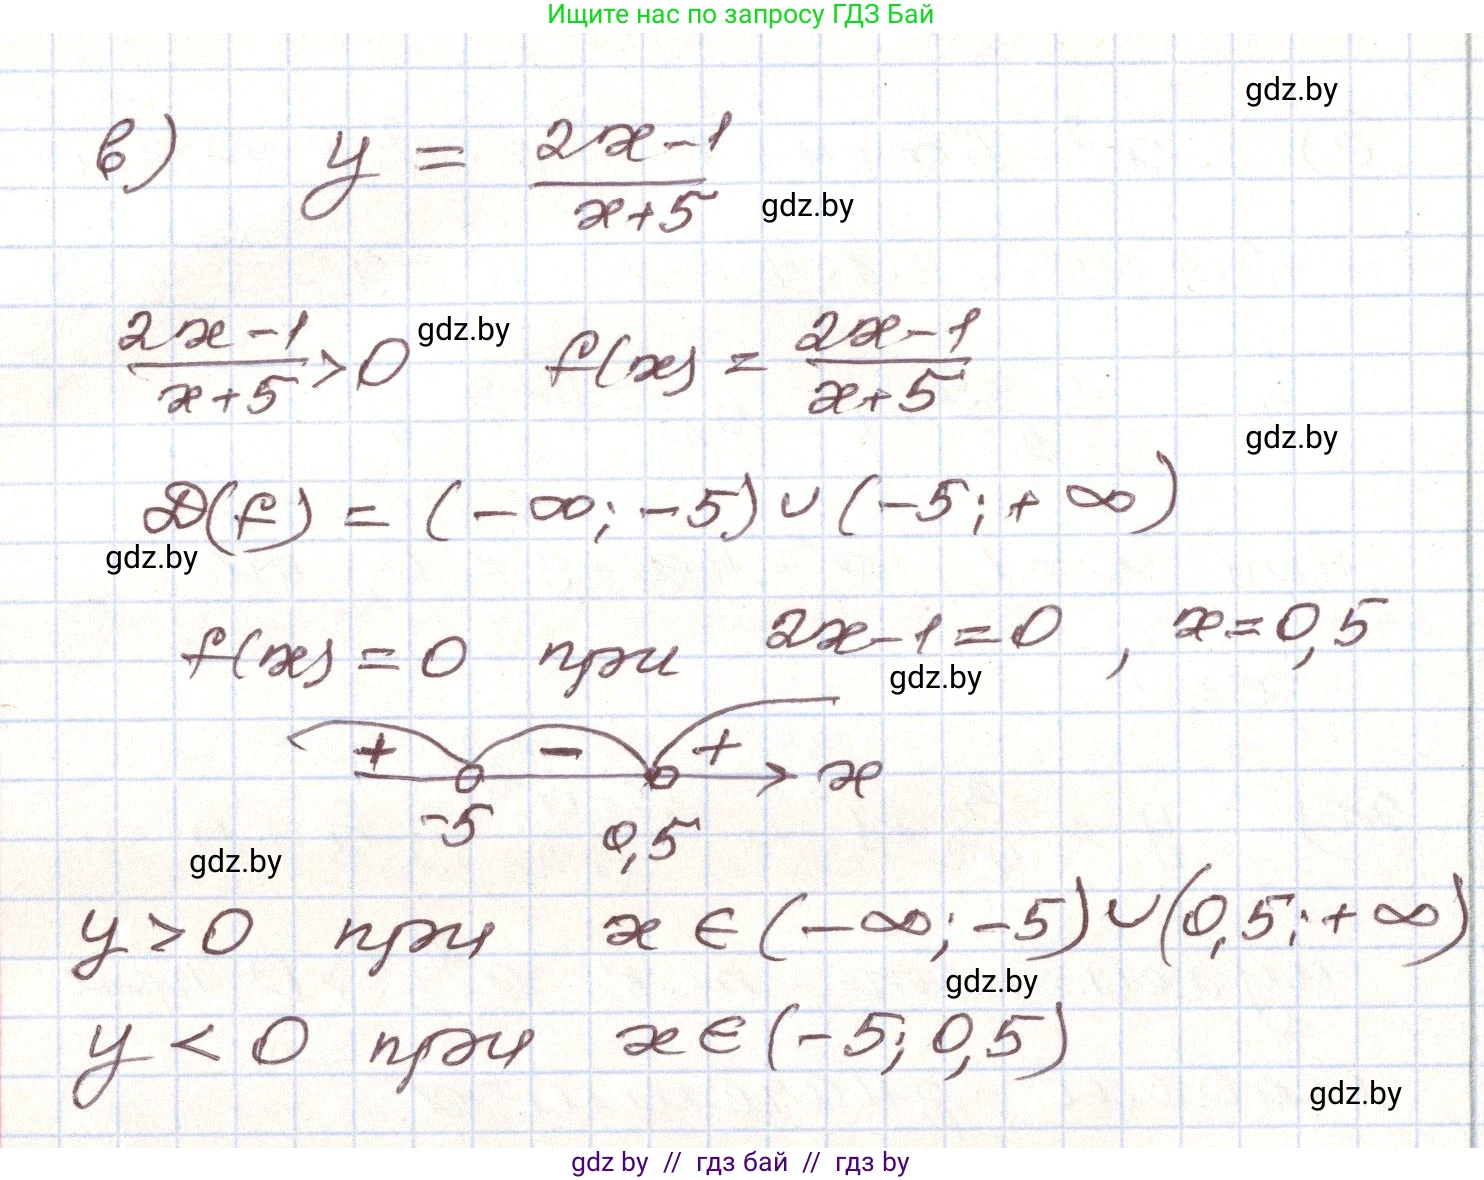 Ищите нас по запросу ГДЗ Бай
gdz.by
в) y = (2x-1)/(x+5)
gdz.by
(2x-1)/(x+5) > 0 gdz.by f(x) = (2x-1)/(x+5)
gdz.by
D(f) = (-∞; -5) ∪ (-5; +∞)
gdz.by
f(x) = 0 при 2x-1=0, x=0,5
gdz.by
+ - + x
-5 0,5
gdz.by
y > 0 при x ∈ (-∞; -5) ∪ (0,5; +∞)
gdz.by
y < 0 при x ∈ (-5; 0,5)
gdz.by
gdz by // гдз бай // гдз by